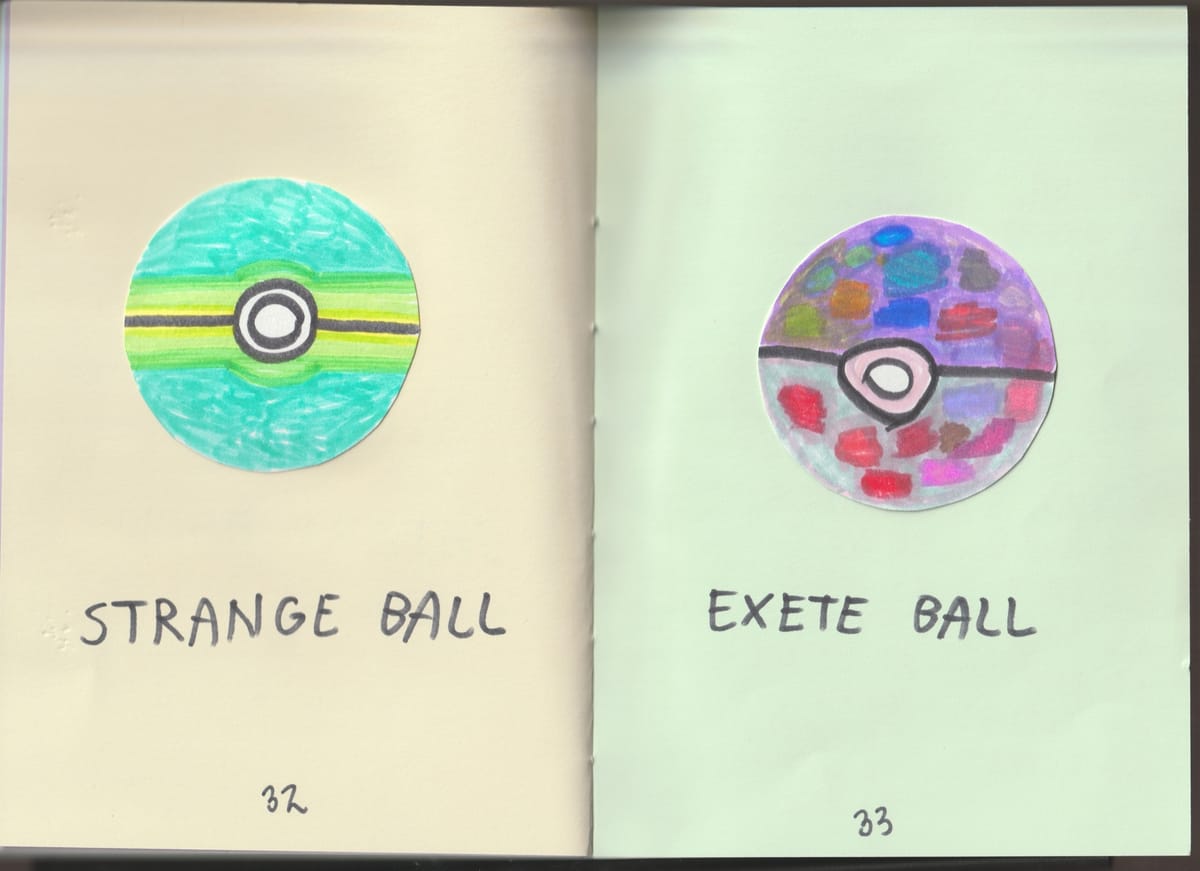 STRANGE BALL
32
EXETE BALL
33